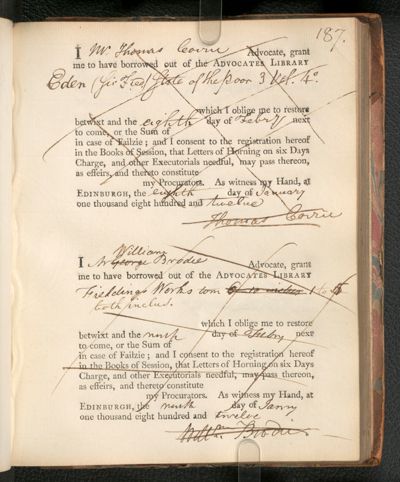 187.
I Mr Thomas Corrie Advocate, grant
me to have borrowed out of the ADVOCATES LIBRARY
Eden (Sir Fred) State of the Poor 3 Vol. 4o.
which I oblige me to restore
betwixt and the eighth day of Febry next
to come, or the Sum of
in case of Failzie; and I consent to the registration hereof
in the Books of Session, that Letters of Horning on six Days
Charge, and other Executorials needful, may pass thereon,
as effeirs, and thereto constitute
my Procurators. As witness my Hand, at
EDINBURGH, the eighth day of January
one thousand eight hundred and twelve
Thomas Corrie
William
I Mr George Brodie Advocate, grant
me to have borrowed out of the ADVOCATES LIBRARY
Fieldings Works tom 6, 10 inclus 1 to 5
both inclus.
which I oblige me to restore
betwixt and the ninth day of Febry next
to come, or the Sum of
in case of Failzie; and I consent to the registration hereof
in the Books of Session, that Letters of Horning on six Days
Charge, and other Executorials needful, may pass thereon,
as effeirs, and thereto constitute
my Procurators. As witness my Hand, at
EDINBURGH, the ninth day of Janry
one thousand eight hundred and twelve
Willm Brodie